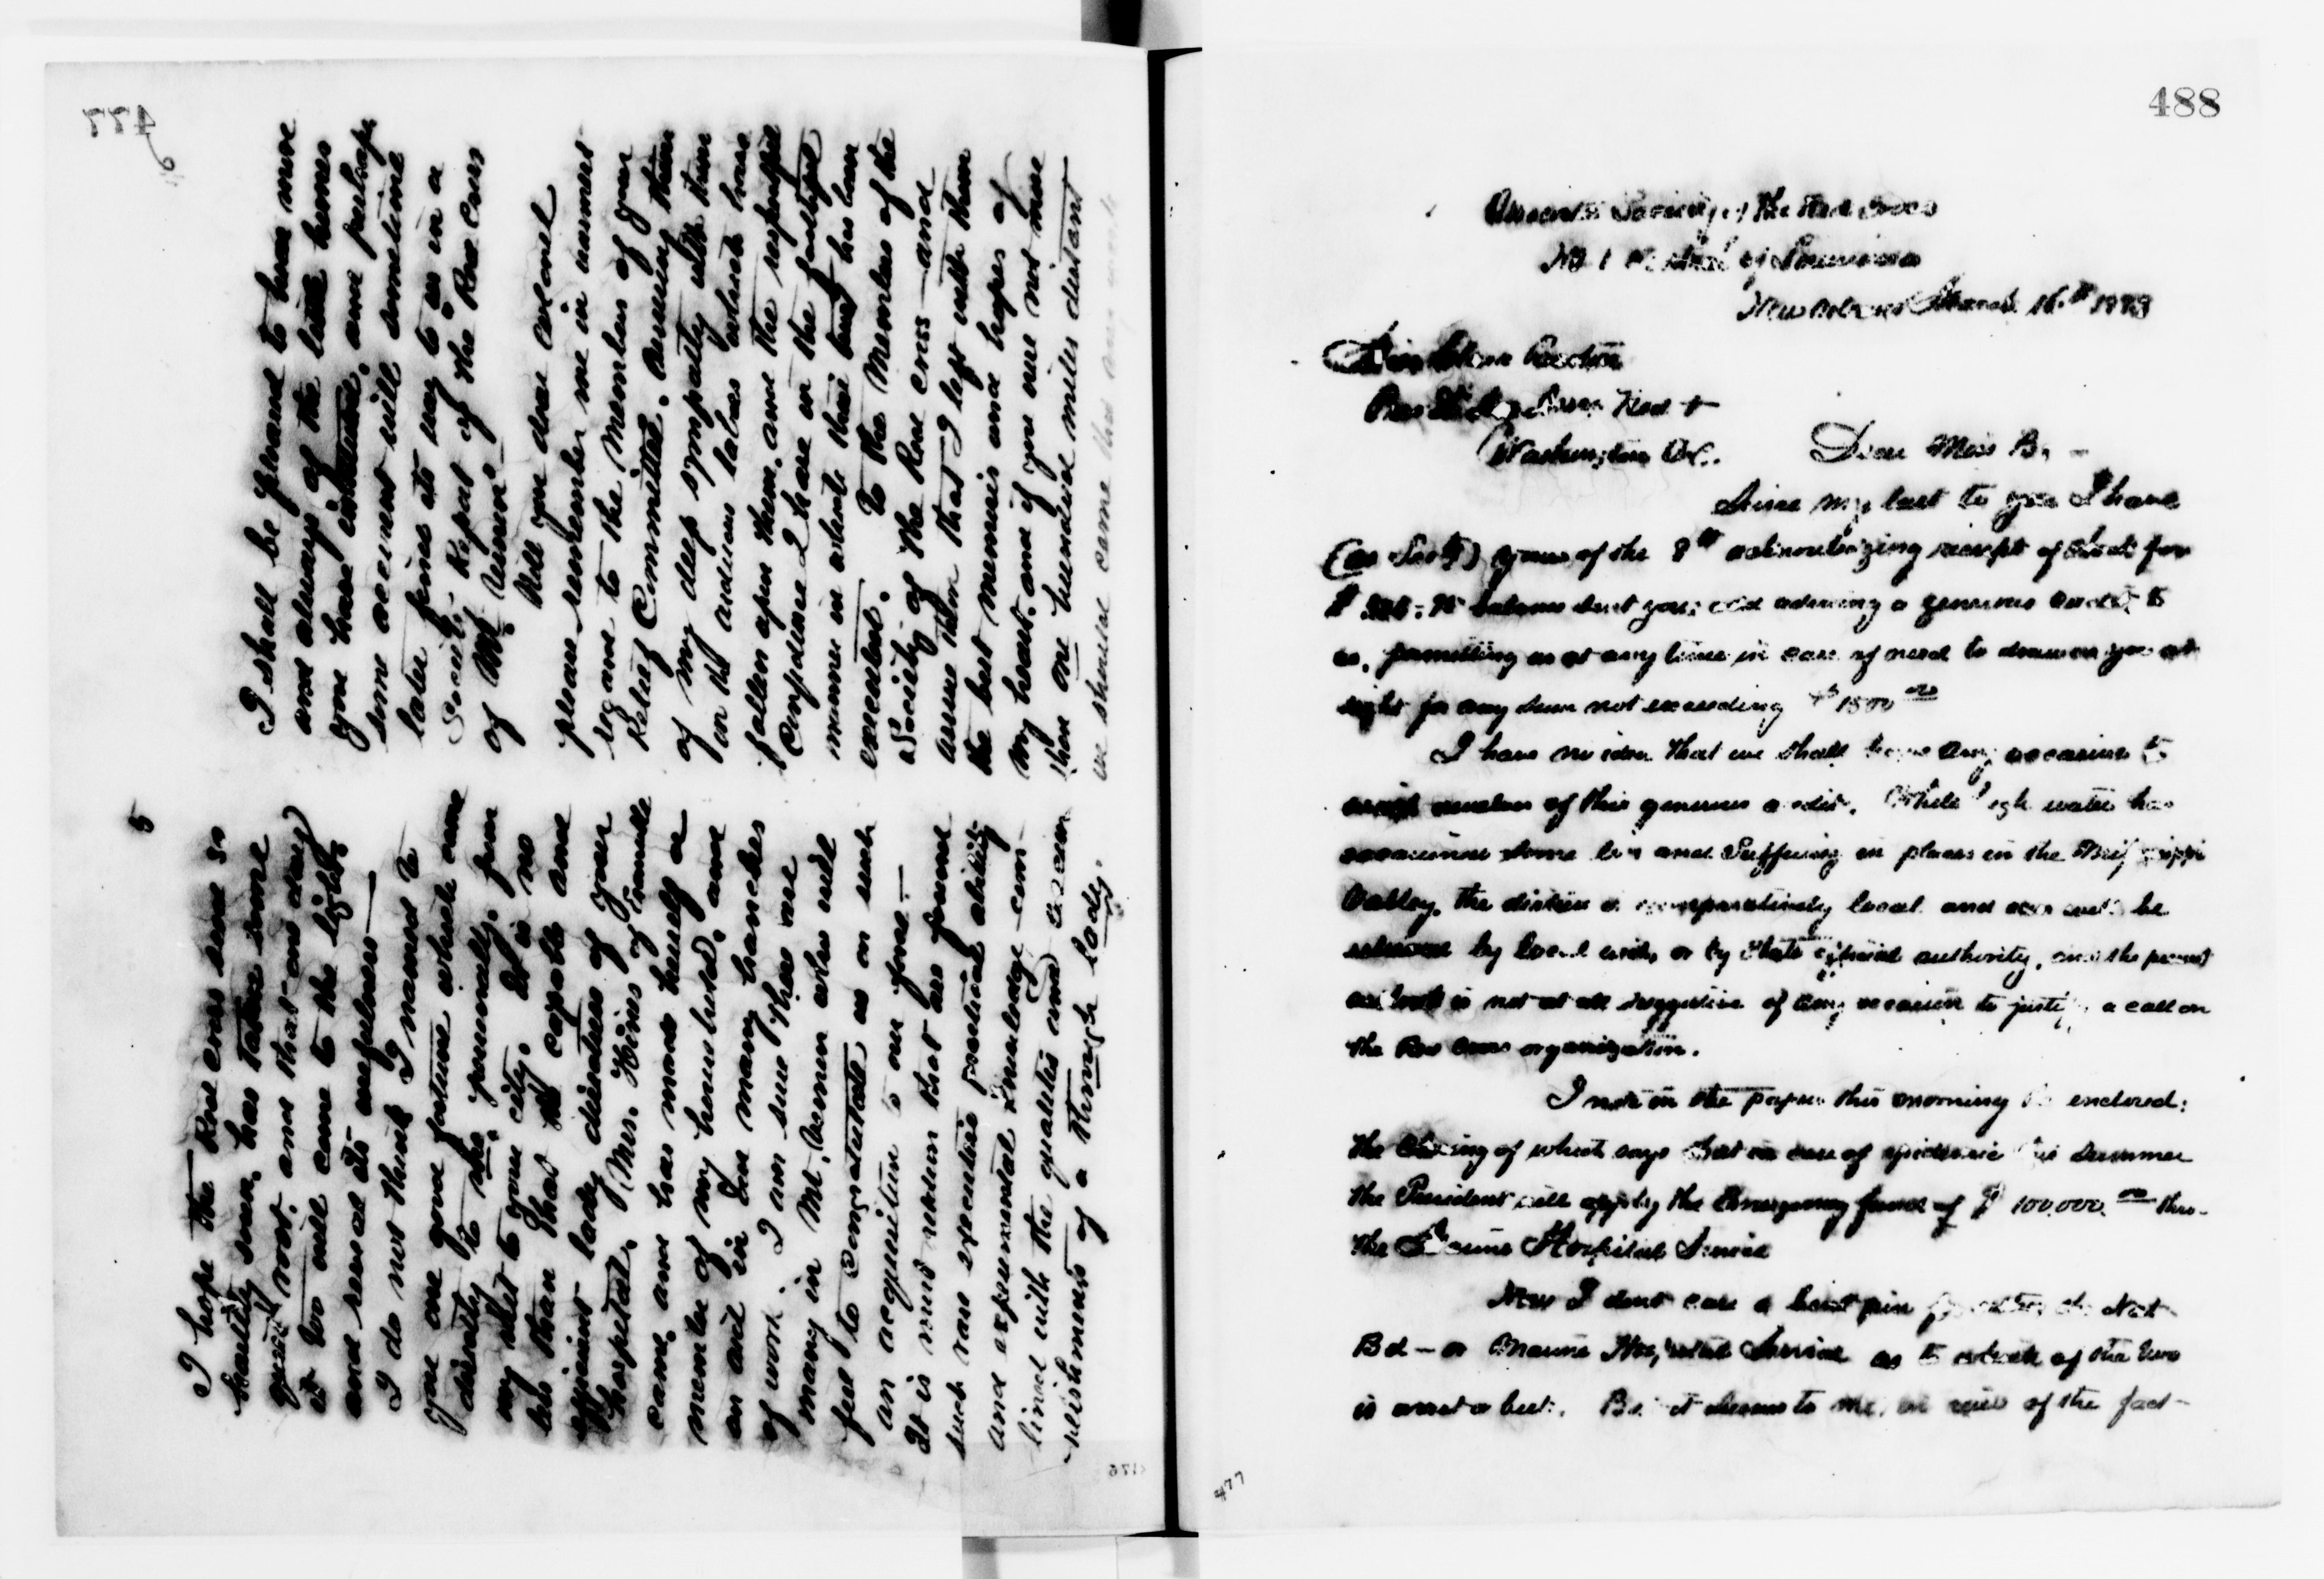 477
5
I hope the Red Cross seed so
bountifully sown, has taken some
good root and that one day
it too will come to the light
and reveal its usefulness—
I do not think I named to
you one good fortune which came
directly to me, personally, from
my visit to your city. It is no
less than that the capable and
efficient lady directress of your
hospital, (Mrs. Hines of
came and has made herself a
member of my household, and
an aid in our many branches
of work. I am sure there are
many in Mt. Vernon who will
feel to congratulate us on such
an acquisition to our force—
It is most seldom that are found
such rare executive practical ability
and experimental knowledge com-
bined with the qualities and accom
plishments of a through lady.
I shall be pleased to hear more
and always of the little homes
you have instituted, and perhaps
some account will sometime
later find its way to us in a
Society Report of the Red Cross
of Mt. Vernon.
Will you dear colonel
please remember me in warmest
regard to the Members of your
Relief Committee. Assuring them
of my deep sympathy with them
in the arduous labors which have
fallen upon them, and the respectful
confidence I have in the faithful
manner in which their trust has been
executed. To the Members of the
Society of the Red Cross—and
assure them that I left with them
the best memories and hopes of
my heart, and if you were not more
than one hundred miles distant
we should come
176
488
American Society of the Red Cross
New Orleans March 16th 1883
Miss Clara Barton
Washington D.C. Dear Miss B. -
Since my last to you I have
(as Secty) yours of the 8th acknowledging receipt of draft for
balance sent you; and advising a generous credit to
us, permitting us at any time in case of need to draw on you at
sight for any sum not exceeding $1500.00
I have no idea that we shall have any occasion to
avail ourselves of this generous credit. While high water has
occasioned some loss and Suffering in places in the Mississippi
Valley, the distress is comparatively local and can well be
relieved by local aid, or by State official authority, and the present
outlook is not at all suggestive of any occasion to justify a call on
the Red Cross organization.
I note in the papers this morning the enclosed:
the closing of which says that in case of epidemic this Summer
the President will apply the Emergency fund of $100.000.00 thro.
the Marine Hospital Service
Now I dont care a bent pin for either the Nat
Bd - or Marine Hospital Service as to which of the two
is worst or best. But it seems to me, in view of the fact -
477